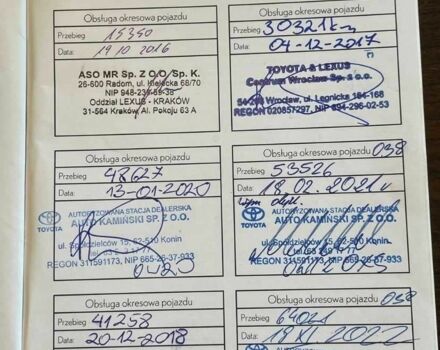 Obsługa okresowa pojazdu
Przebieg 15350
Data: 19 10 2016
ASO MR Sp. Z O.O. Sp. K.
26-600 Radom, ul. Kielecka 68/70
NIP 948-238-69-38
Oddział LEXUS - KRAKÓW
31-564 Kraków Al. Pokoju 63 A
Obsługa okresowa pojazdu
Przebieg 30321 km
Data: 04-12-2017
TOYOTA & LEXUS
Centrum Wrocław Sp. z o.o.
Wrocław, ul. Legnicka 164-168
REGON 020857297, NIP 894-296-02-53
Obsługa okresowa pojazdu
Przebieg 48627
Data: 13-01-2020
AUTORYZOWANA STACJA DEALERSKA
AUTO KAMIŃSKI SP. Z O.O.
TOYOTA
ul. Spółdzielców 15, 62-510 Konin
REGON 311591173, NIP 665-26-37-933
Obsługa okresowa pojazdu 038
Przebieg 53526
Data: 18.02.2021
AUTORYZOWANA STACJA DEALERSKA
AUTO KAMIŃSKI SP. Z O.O.
TOYOTA
ul. Spółdzielców 15, 62-510 Konin
REGON 311591173, NIP 665-26-37-933
Obsługa okresowa pojazdu
Przebieg 41258
Data: 20-12-2018
Obsługa okresowa pojazdu 038
Przebieg 64021
Data: 19 XI 2022